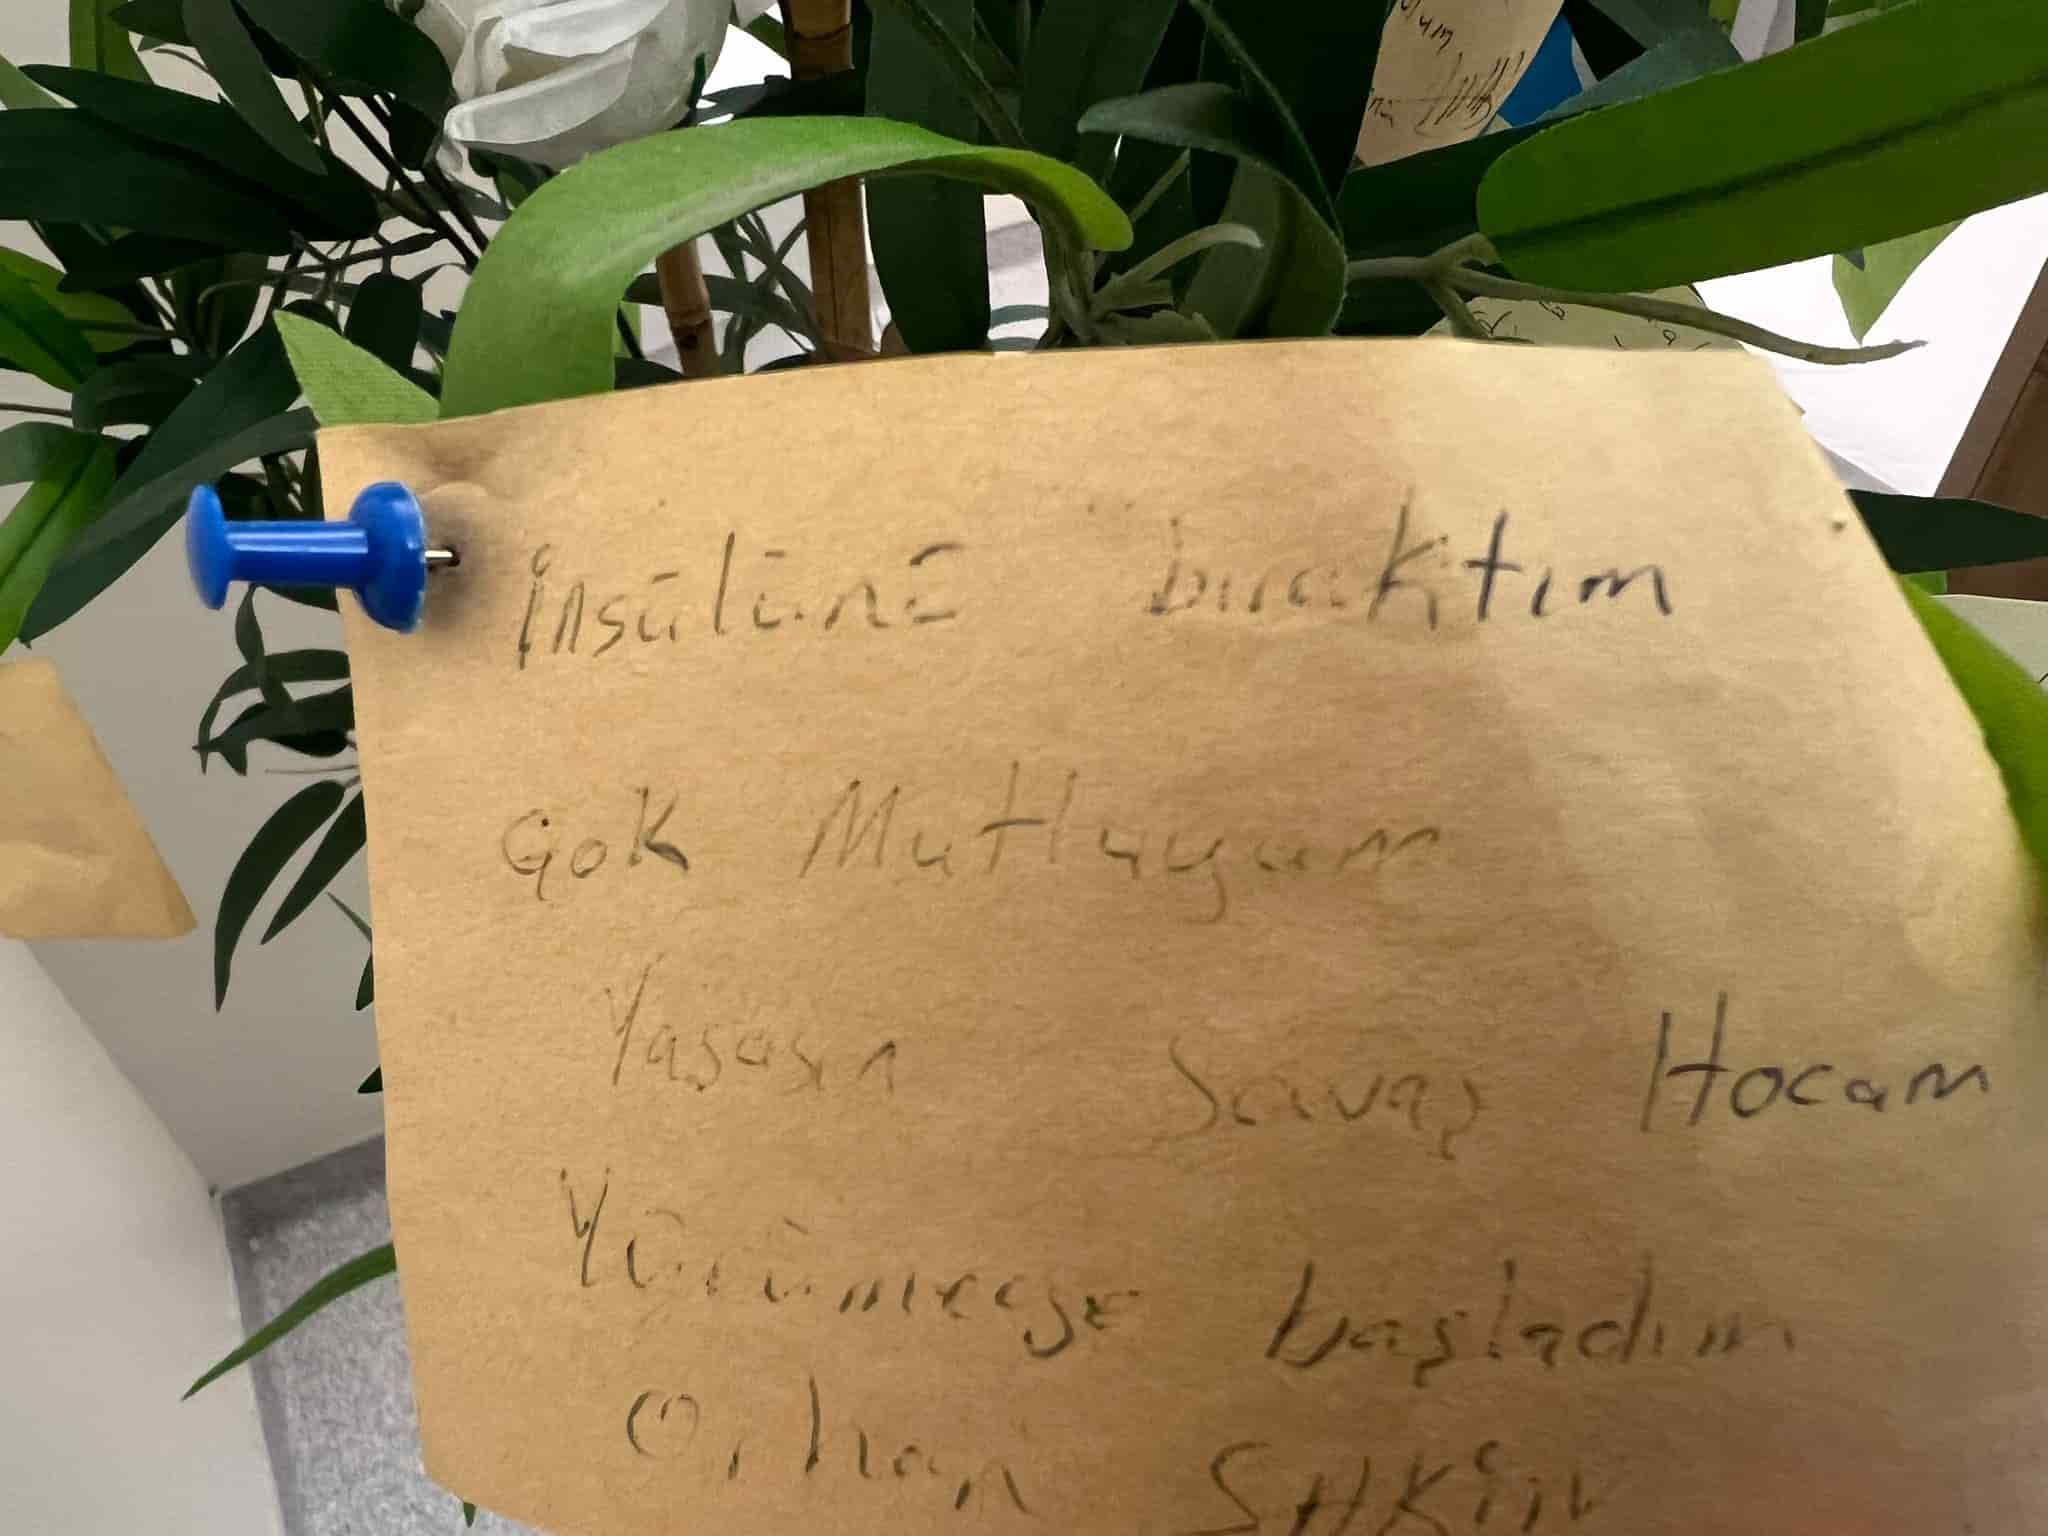 insülünü bıraktım
Çok Mutluyum
Yaşasın Savaş Hocam
Yürümeye başladım
Orhan